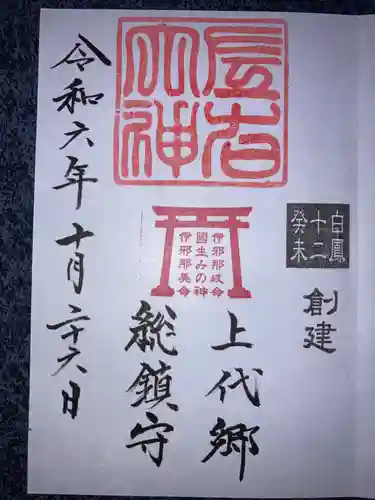 白鳳
十二
癸未
創建
辰水
大神
伊邪那岐命
國生みの神
伊邪那美命
上代郷
総鎮守
令和六年十月二十六日